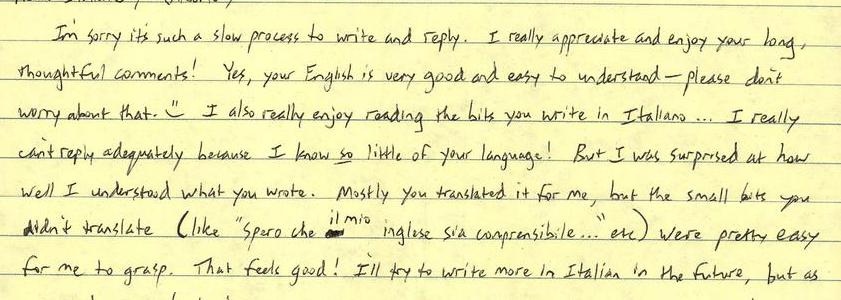 I'm sorry it's such a slow process to write and reply. I really appreciate and enjoy your long,
thoughtful comments! Yes, your English is very good and easy to understand — please don't
worry about that. I also really enjoy reading the bits you write in Italiano ... I really
can't reply adequately because I know so little of your language! But I was surprised at how
well I understood what you wrote. Mostly you translated it for me, but the small bits you
didn't translate (like "spero che il mio inglese sia comprensibile..." etc) were pretty easy
for me to grasp. That feels good! I'll try to write more in Italian in the future, but as